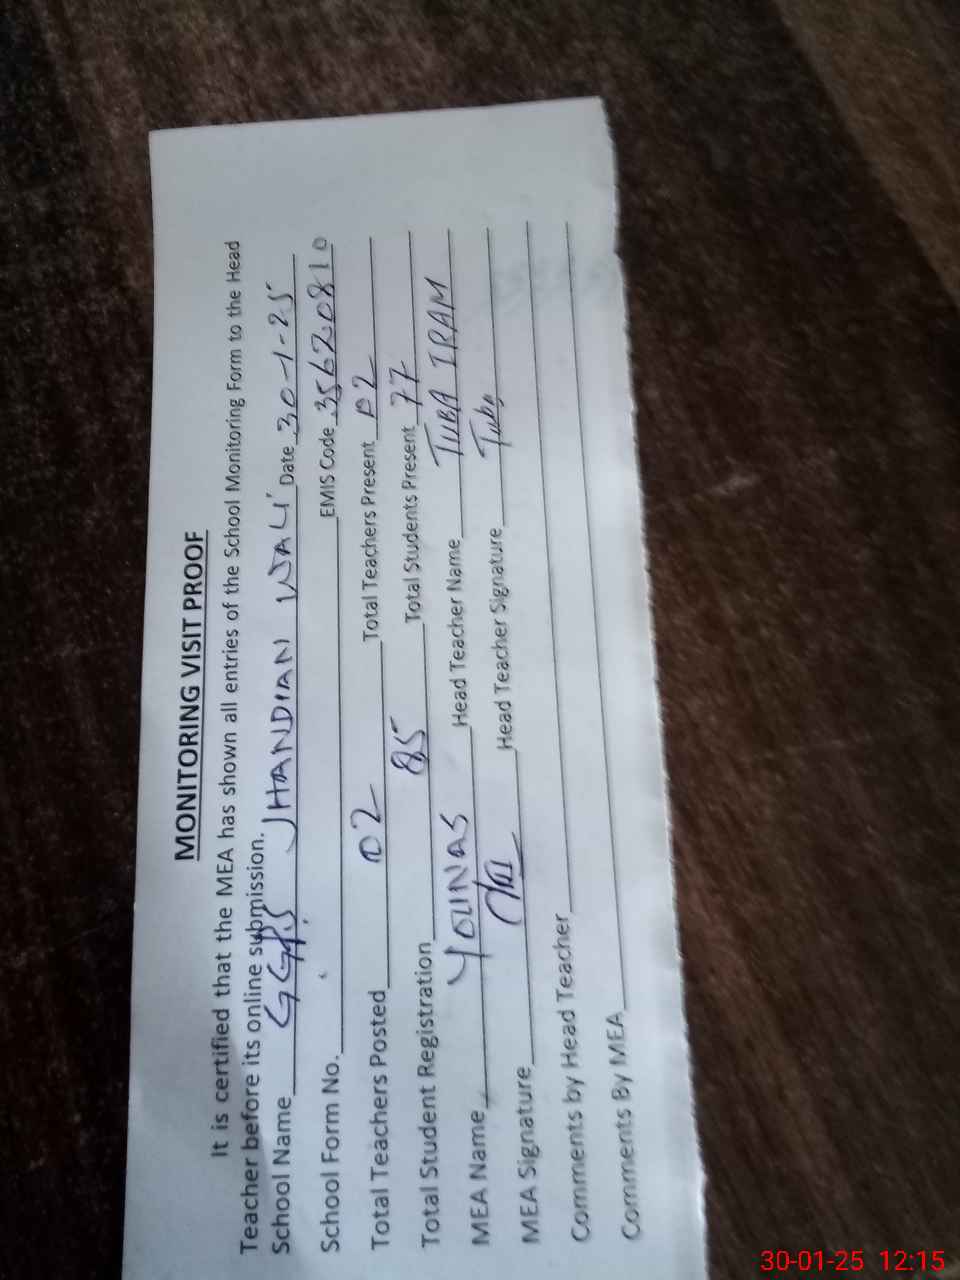 MONITORING VISIT PROOF
It is certified that the MEA has shown all entries of the School Monitoring Form to the Head
Teacher before its online submission.
School Name GGPS JHANDIAN WALI Date 30-1-25
School Form No. EMIS Code 35620810
Total Teachers Posted 02 Total Teachers Present 02
Total Student Registration 85 Total Students Present 77
MEA Name YOUNAS Head Teacher Name TUBA IRAM
MEA Signature Head Teacher Signature Tuba
Comments by Head Teacher
Comments By MEA
30-01-25 12:15